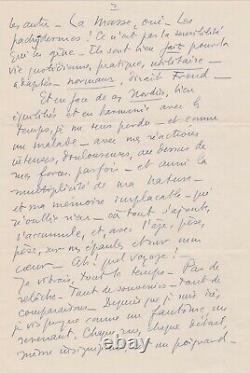 7
les autres - La Masse, oui - Les
pachydermes! Ce n'est pas la sensibilité
qui les gêne - Ils sont bien faits pour la
vie quotidienne, pratique, utilitaire -
adaptés - normaux, dirait Freud -
Et en face de ces Nordiss, bien
équilibrés et en harmonie avec le
temps, je me sens perdue - et comme
un malade - avec mes réactions
intenses, douloureuses, au dessus de
mes forces, parfois - et aussi la
multiplicité de ma nature -
et ma mémoire implacable - qui
n'oublie rien - où tout s'ajoute,
s'accumule, et avec l'âge, pèse,
pèse, sur mes épaules et sur mon
cœur - Ah! quel voyage!
Je vibrais, tout le temps - Pas de
relâche - Tant de souvenirs - tant de
comparaisons - Depuis que je suis ici,
je vis presque comme un fantôme, un
revenant. Chaque rue, chaque détail,
même insignifiant est un poignard -
www.collections.com